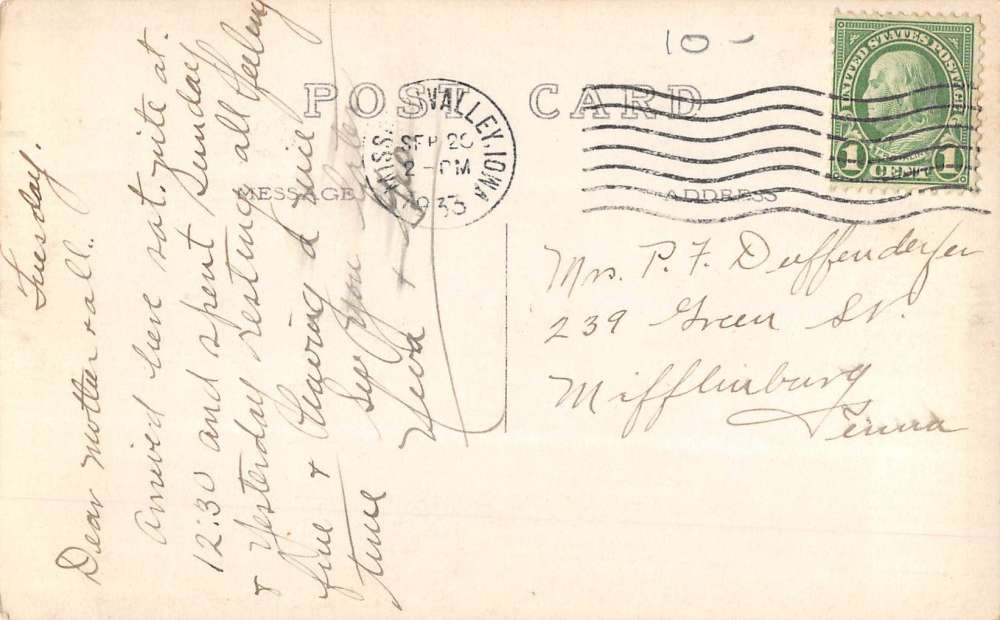 10 -
POST CARD
MISS. VALLEY, IOWA
SEP 26
2 - PM
1933
UNITED STATES POSTAGE
1 CENT 1
MESSAGE
ADDRESS
Tuesday.
Dear Mother + all..
arrived here sat. nite at.
12:30 and spent Sunday
+ Yesterday resting all feeling
fine + having a nice
time
See you later
+
Mrs. P. F. Duffenderfer
239 Green St.
Mifflinburg
Penna